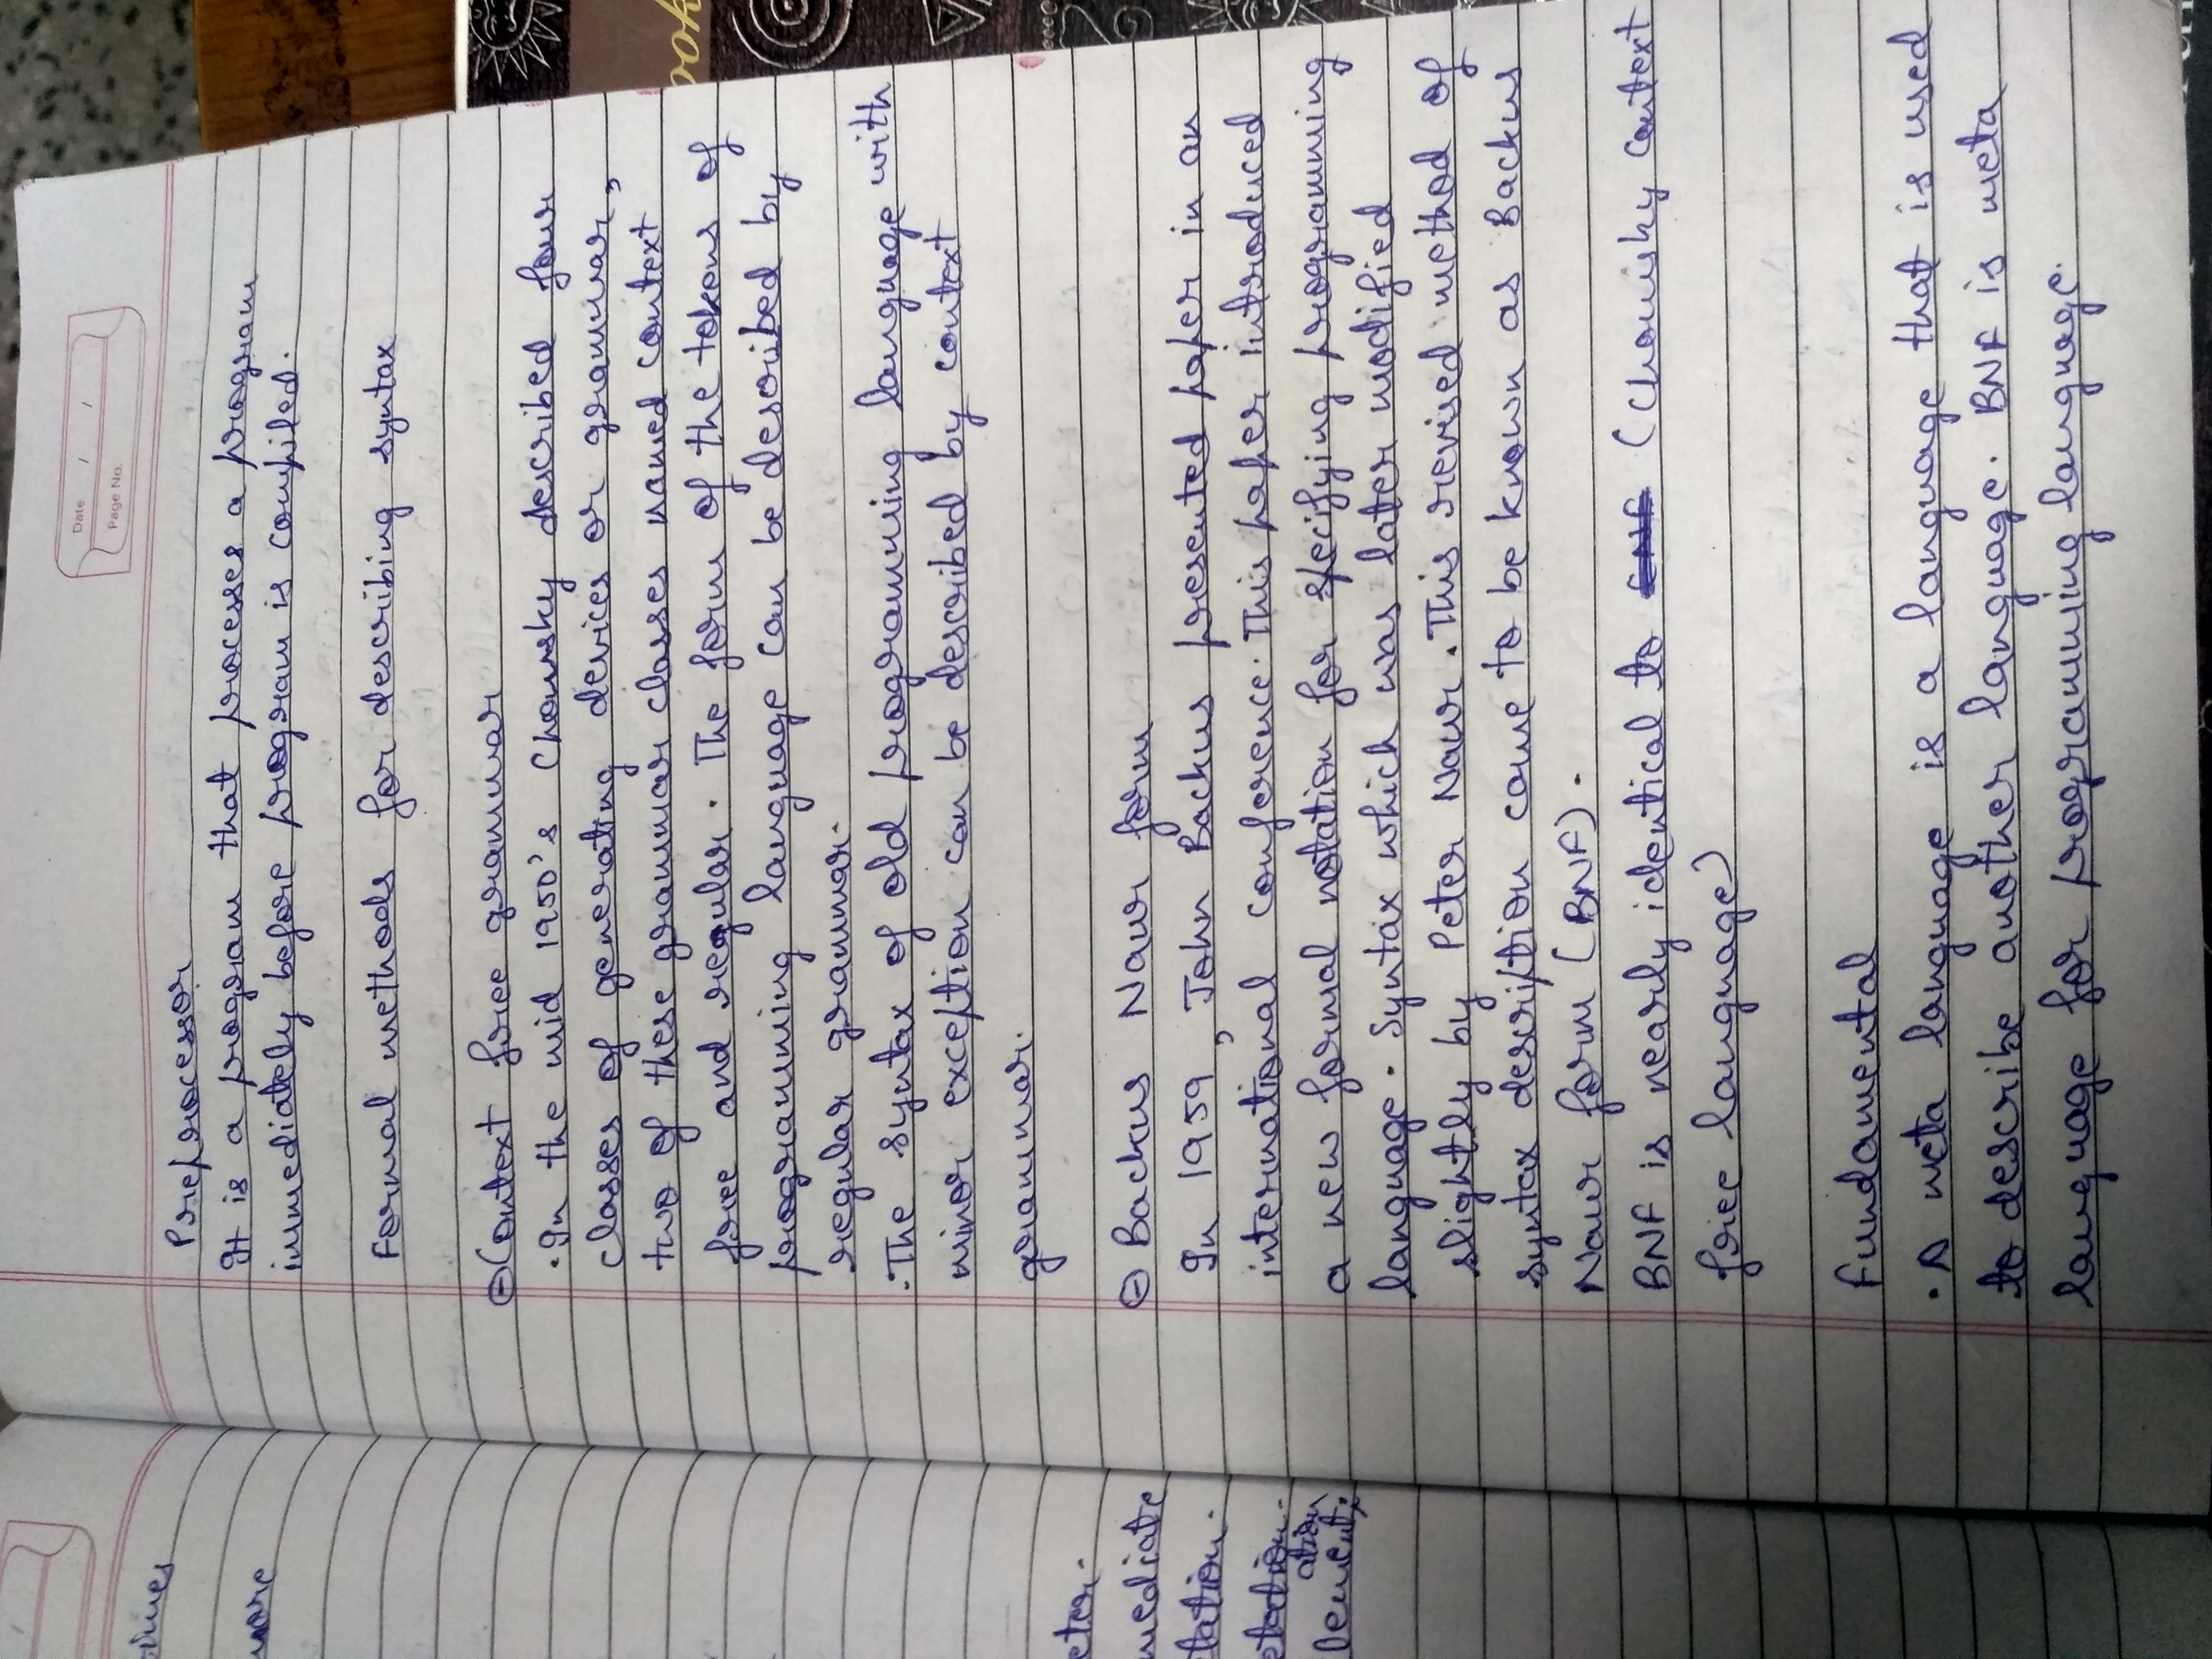 Date / /
Page No.
Preprocessor
It is a program that processes a program
immediately before program is compiled.
Formal methods for describing syntax
Context free grammar
. In the mid 1950's Chomsky described four
classes of generating devices or grammar,
two of these grammar classes named context
free and regular. The forms of the tokens of
programming language can be described by
regular grammar.
. The syntax of old programming language with
minor exception can be described by context
grammar.
Backus Naur form
In 1959, John Backus presented paper in an
international conference. This paper introduced
a new formal notation for specifying programming
language. Syntax which was later modified
slightly by Peter Naur. This revised method of
syntax description came to be known as Backus
Naur form (BNF).
BNF is nearly identical to (Chomsky context
free language)
Fundamental
. A meta language is a language that is used
to describe another language. BNF is meta
language for programming language.
eter.
mediate
lation.
etation.
ation
lement.